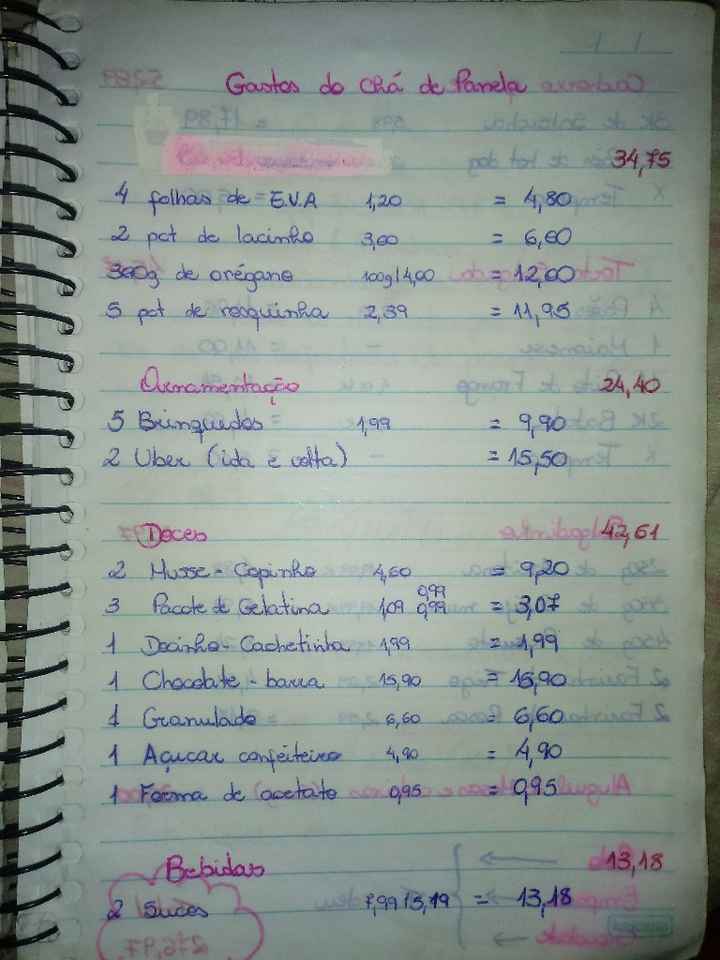 Gastos do Chá de Panela
34,75
4 folhas de E.V.A 1,20 = 4,80
2 pct de lacinho 3,00 = 6,00
300g de orégano 100g/4,00 = 12,00
5 pct de rosquinha 2,39 = 11,95
Ornamentação 24,40
5 Brinquedos 1,99 = 9,90
2 Uber (ida e volta) = 15,50
Doces 42,61
2 Musse - Copinho 4,60 = 9,20
0,99
3 Pacote de Gelatina 1,09 0,99 = 3,07
1 Docinho - Cachetinha 1,99 = 1,99
1 Chocolate - barra 15,90 = 15,90
1 Granulado 6,60 = 6,60
1 Açucar confeiteiro 4,90 = 4,90
1 Forma de acetato 0,95 = 0,95
Bebidas 13,18
2 Sucos 7,99 / 5,19 = 13,18